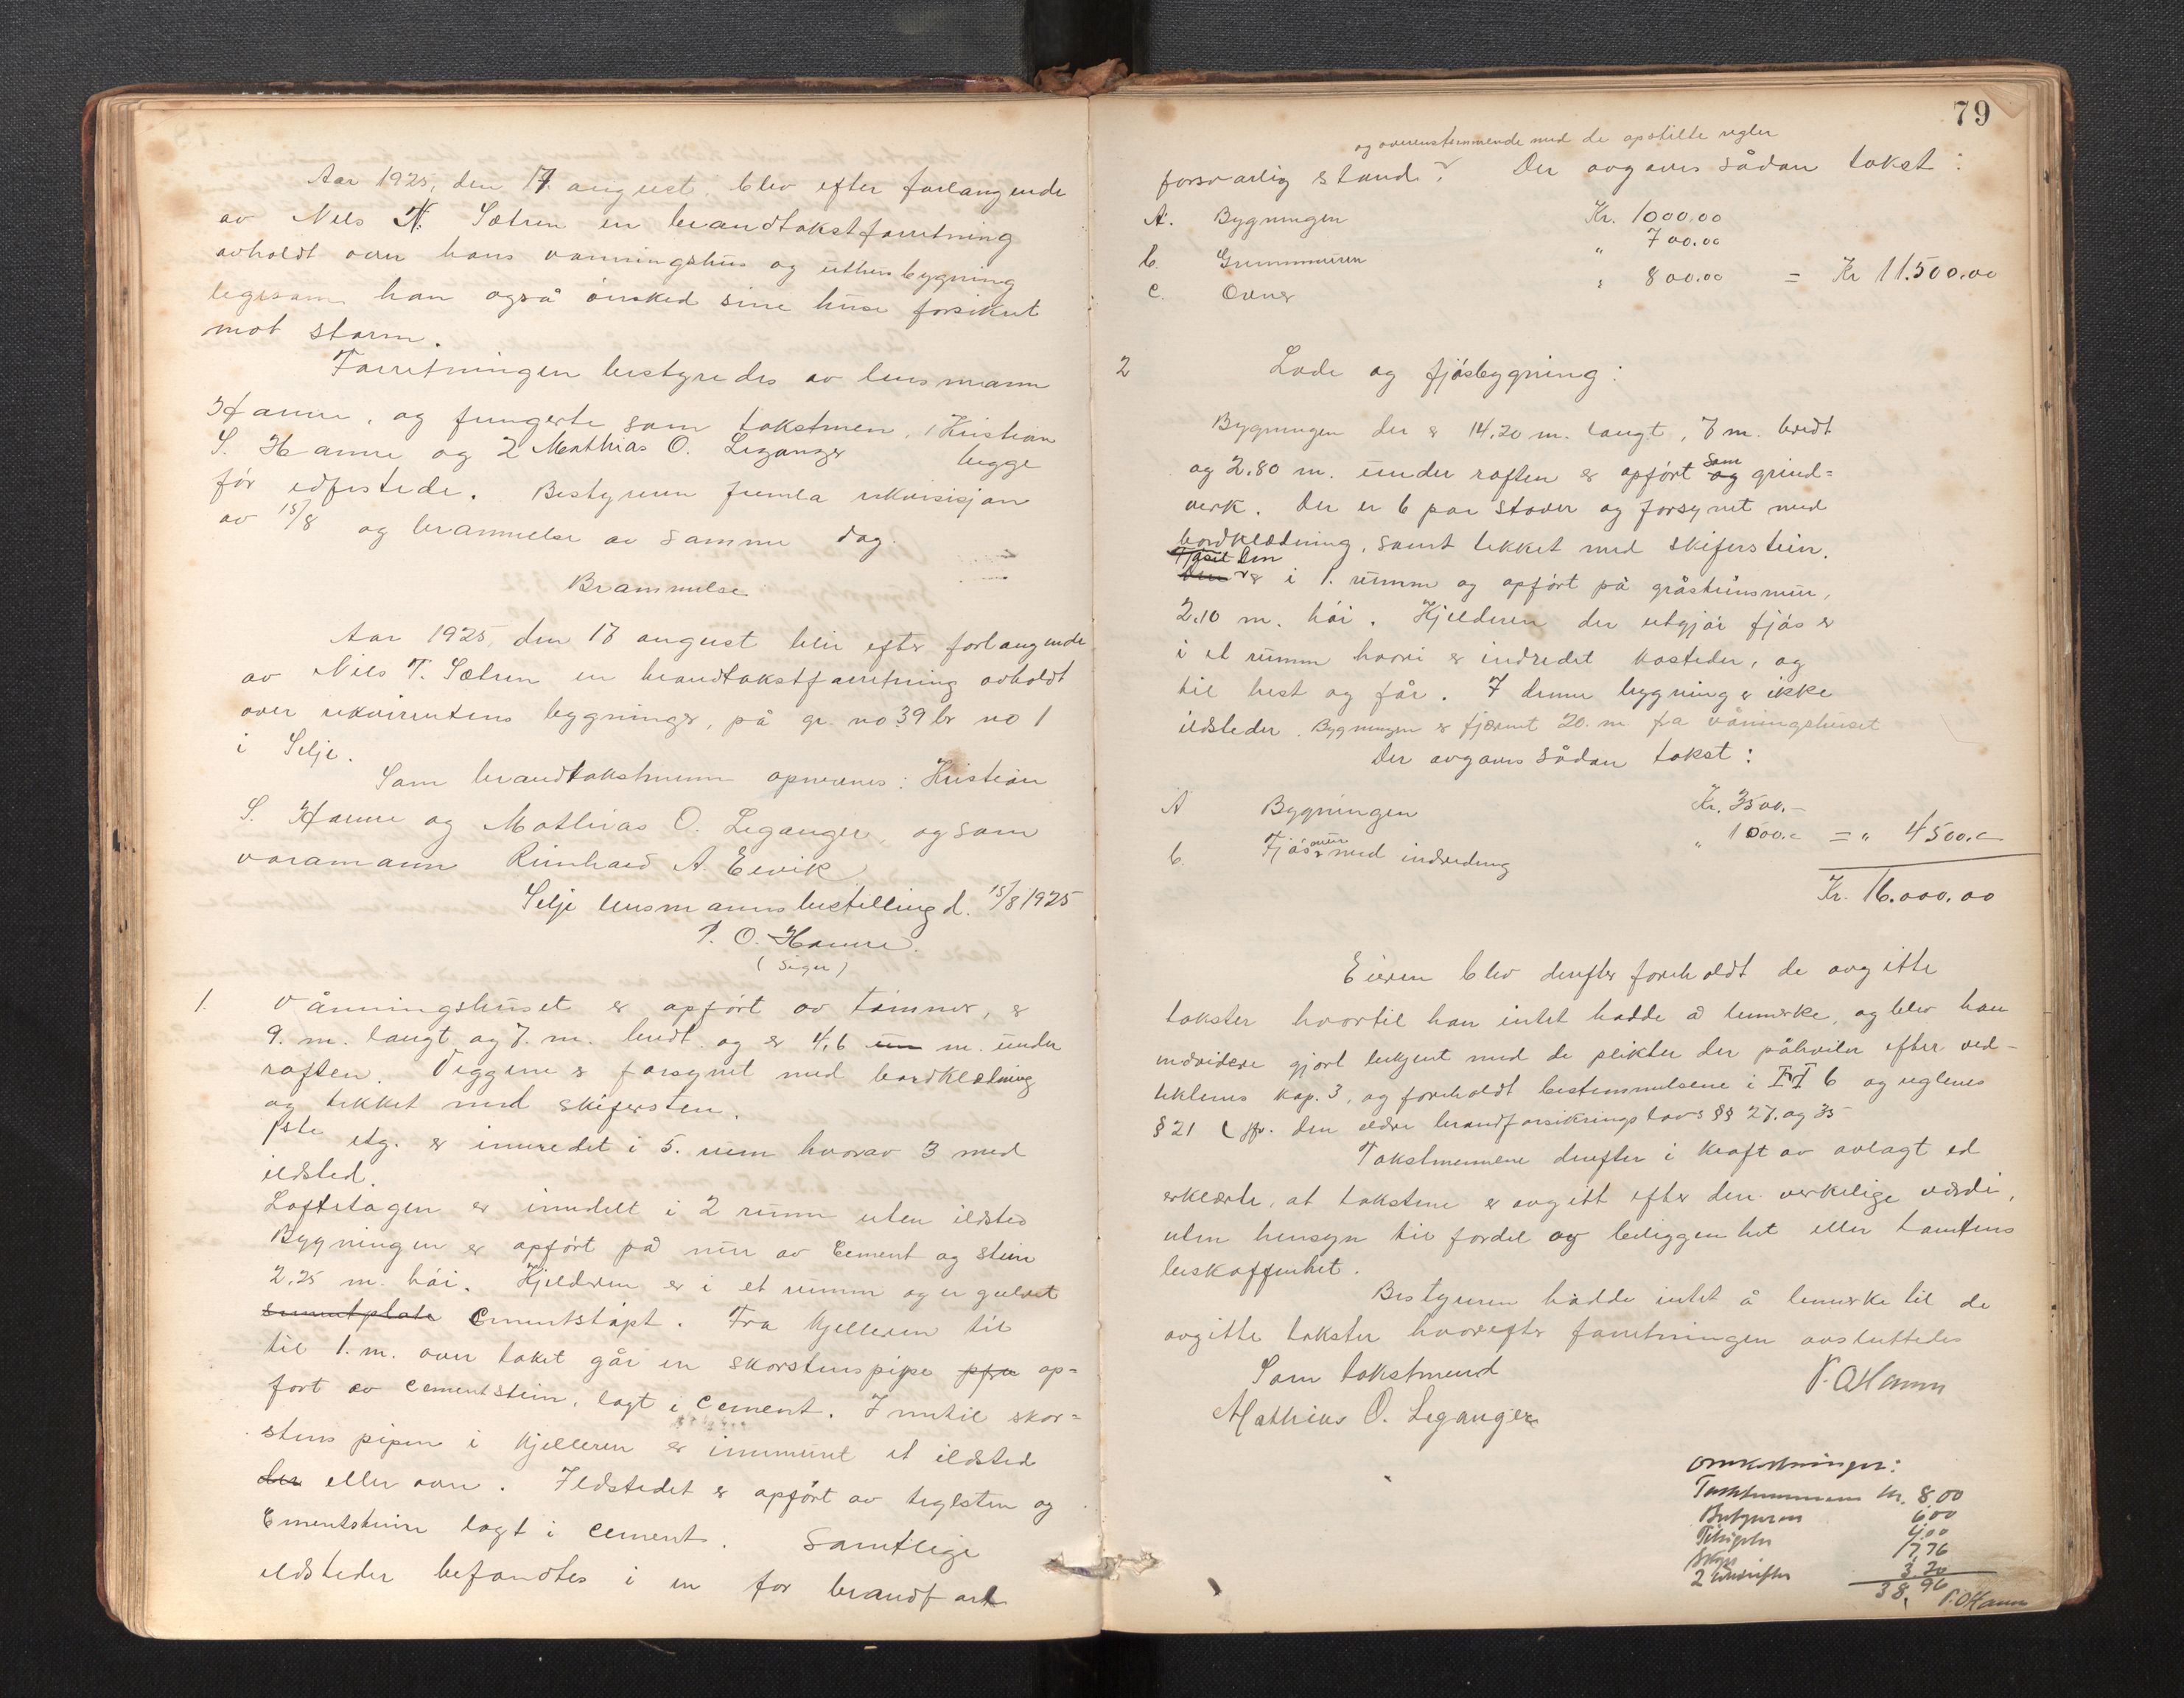 Aar 1925, den 17 august, blev efter forlangende
av Nils N. Sætren en brandtakstforretning
avholdt over hans vanningshus og uthusbygning
legesam han også ønsked sine huse forsikret
mot storm.
Forretningen bestyredes av lensmann
Hamre, og fungerte som takstmen, 1 Kristian
S. Hamre og 2 Mathias O. Leganger begge
før edfestede. Bestyreren fremla rekvisisjon
av 15/8 og berammelse av samme dag.
Berammelse
Aar 1925, den 17 august blir efter forlangende
av Nils T. Sætren en brandtakstforretning avholdt
over rekvirentens bygninger, på gr. no 39 br no 1
i Selje.
Som brandtakstmenn opnevnes: Kristian
S. Hamre og Mathias O. Leganger, og som
varamann Reinhard A. Eivik
Selje lensmannsbestilling d. 15/8 1925
P. O. Hamre.
(sign)
1. Vånningshuset er opført av tømmer, er
9. m. langt og 7. m. bredt og er 4,6 m. under
raften. Veggene er forsynet med bordklædning
og tekket med skifersten.
1ste etg. er innredet i 5. rum hvorav 3 med
ildsted.
Loftetagen er inndelt i 2 rumm uten ildsted
Bygningen er opført på mur av Cement og stein
2,25 m. høi. Kjelderen er i et rumm og er gulvet
sementplate Cementstøpt. Fra kjelleren til
til 1. m. over taket går en skorstenspipe op=
ført av cementstein, lagt i cement. Inntil skor=
stens pipen i kjelleren er innmuret et ildsted
der eller ovn. Ildstedet er opført av teglsten og
Cementsteine lagt i cement. Samtlige
ildsteder befandtes i en for brandfare
79
og overenstemmende med de opstilte regler
forsvarlig stand. Der avgaves sådan takst:
A. Bygningen Kr. 1000.00
b. Grunnmuren " 700.00
c. Ovner " 800.00 = Kr 11.500.00
2 Lade og fjøsbygning:
Bygningen der er 14,20 m. langt, 7 m. bredt
og 2,80 m. under raften er opført som og grind=
verk. Der er 6 par staver og forsynet med
bordklædning, samt tekket med skiferstein.
Den er i 1. rumm og opført på gråsteinsmur,
2.10 m. høi. Kjelderen der utgjør fjøs er
i et rumm hvori er indredet båsteder, og
til hest og får. I denne bygning er ikke
ildsteder. Bygningen er fjernet 20. m. fra våningshuset
Der avgaves sådan takst:
A Bygningen Kr. 3500.-
b. Fjøsmur med indredning " 1000.- = " 4500.-
Kr. 16.000.00
Eieren blev derefter foreholdt de avgitte
takster hvortil han intet hadde å bemerke, og blev han
endvidere gjort bekjent med de plikter der påhviler efter ved-
teklenes kap. 3, og foreholdt bestemmelsene i 6 og reglenes
§ 21 (jfr. den ældre brandforsikringslovs §§ 27. og 35
Takstmennene derefter i kraft av avlagt ed
erklærte, at takstene er avgitt efter den verkelige værdi,
uten hensyn til fordel av beliggenhet eller tomtens
beskaffenhet.
Bestyreren hadde intet å bemerke til de
avgitte takster hvorefter forretningen avsluttedes
Som takstmend P. O Hamre
Mathias O. Leganger
Omkostninger:
Takstmennene kr. 8,00
Bestyreren 6,00
4,00
Skyss 17,76
2 utskrifter 3,20
38,96
P. O Hamre